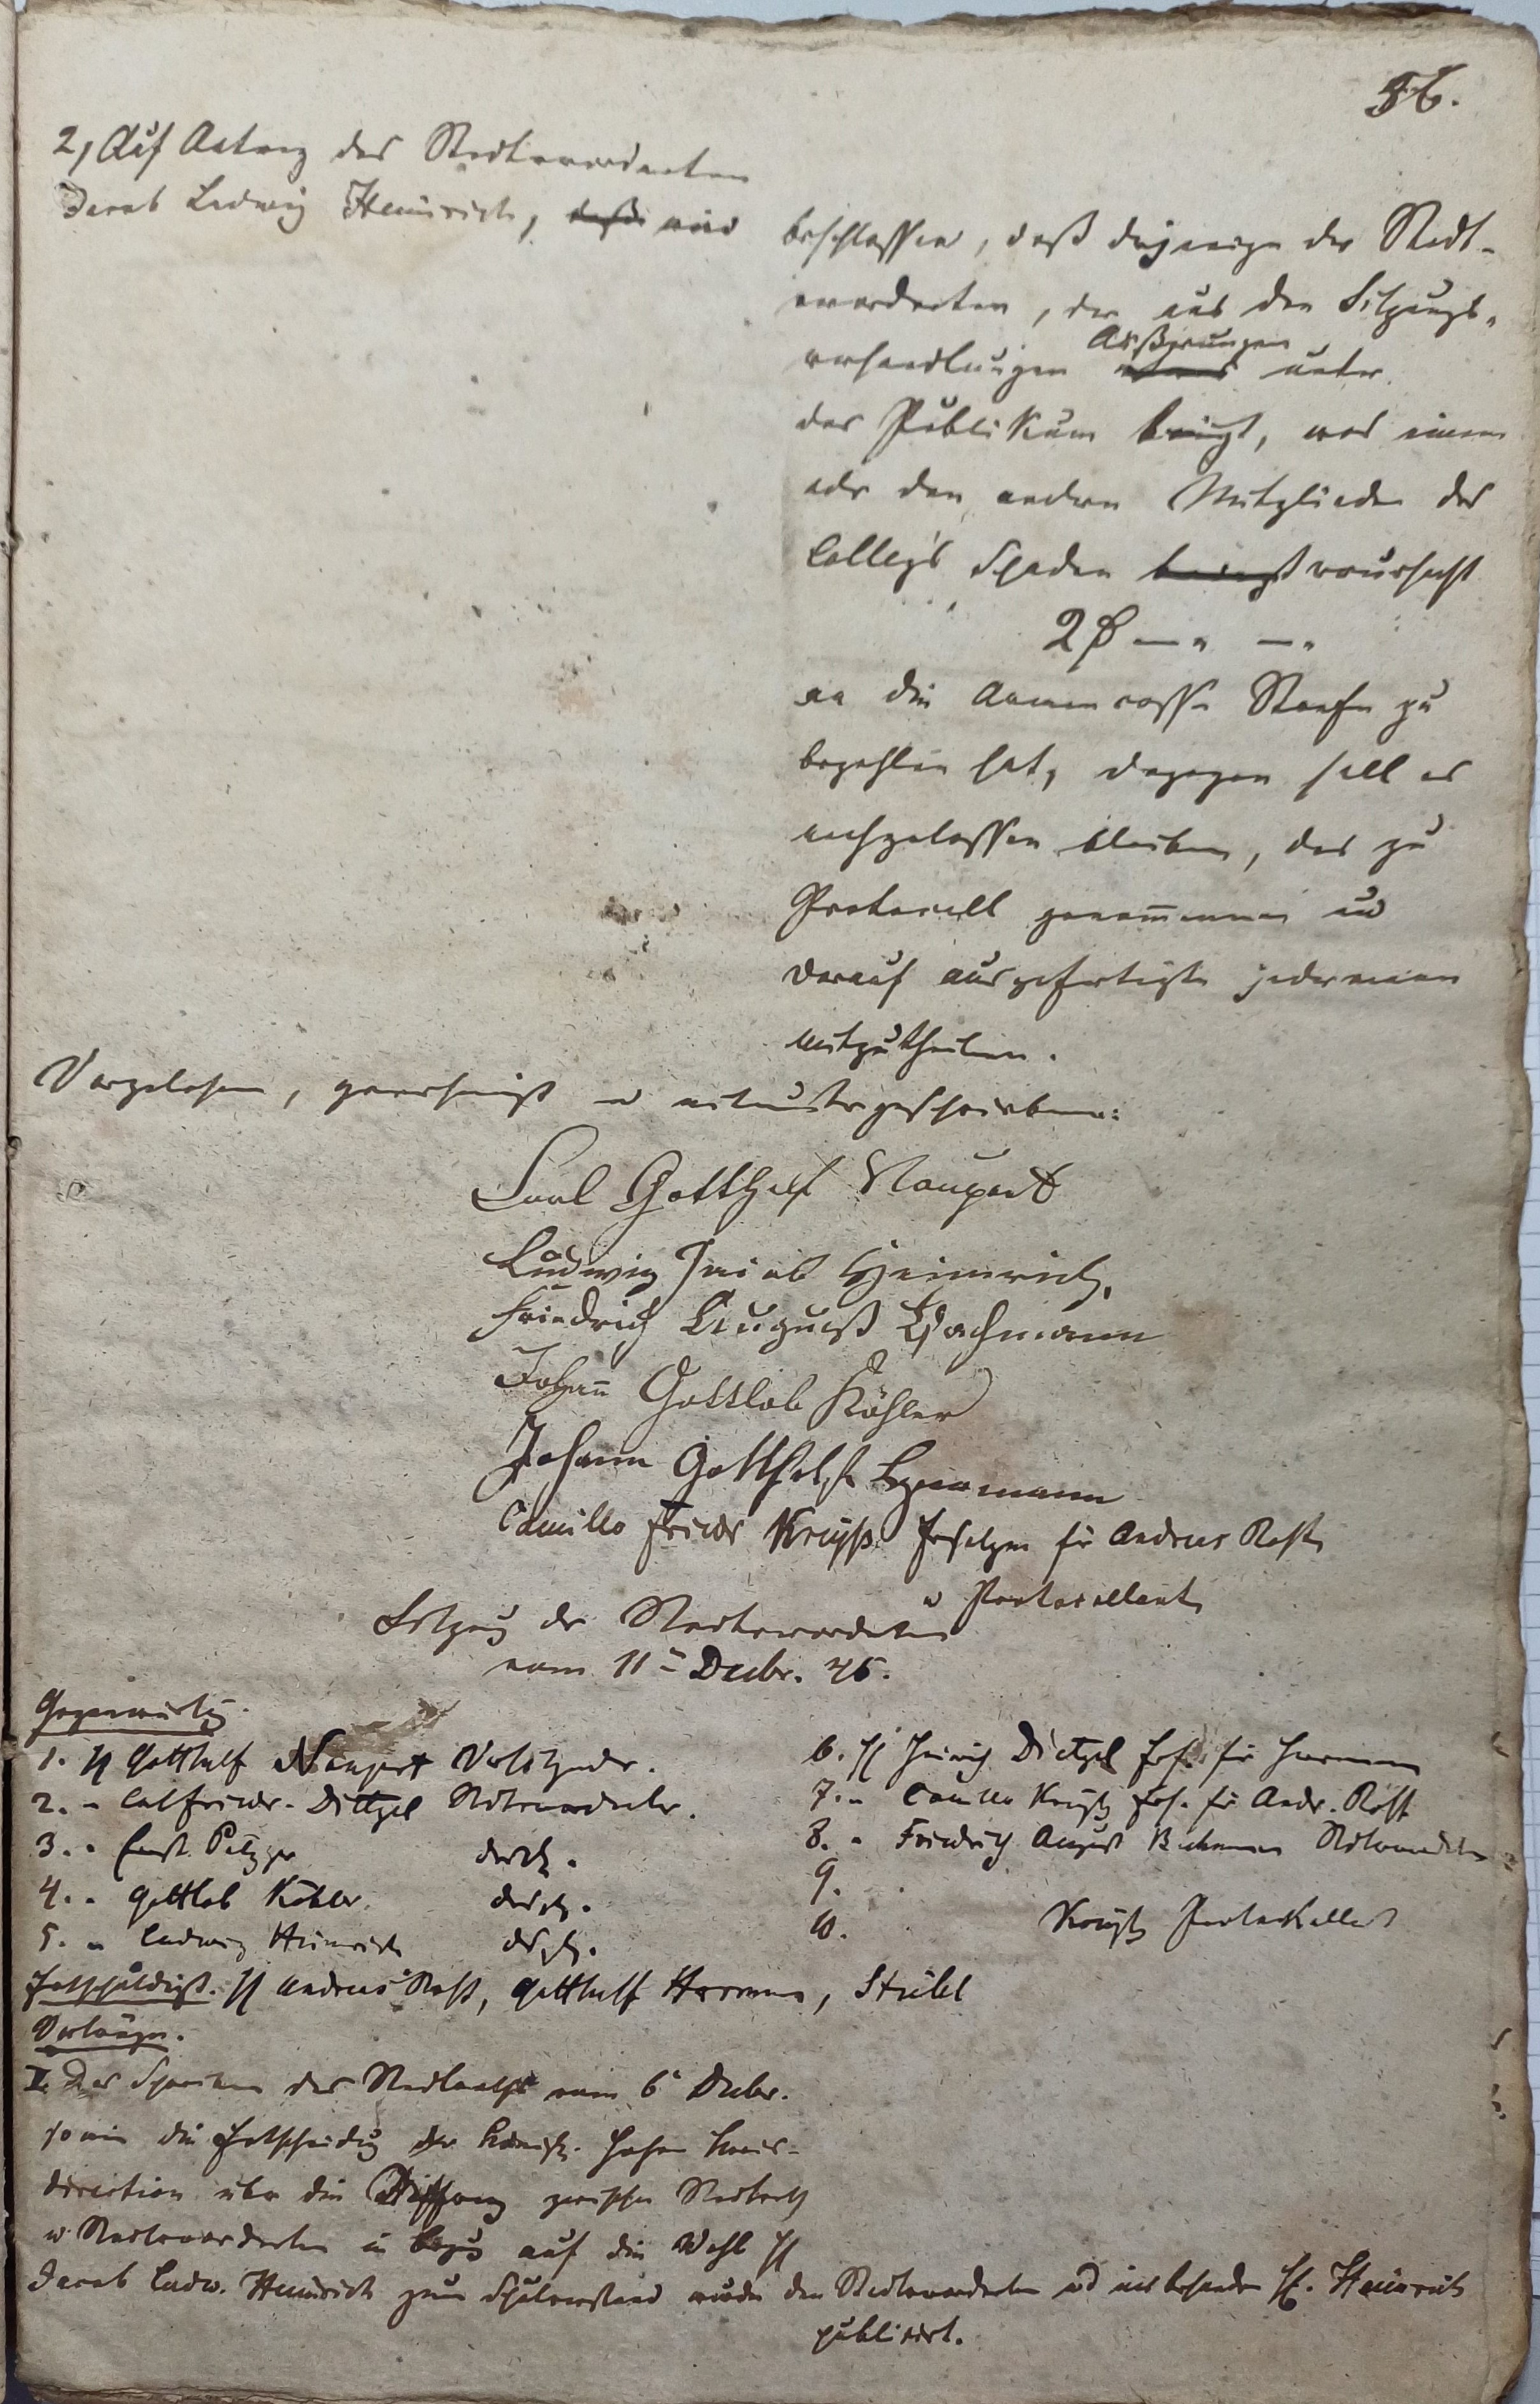 56.
2, Auf Antrag des Stadtverordneten
Jacob Ludwig Heinrich, wird
beschlossen, daß dasjenige der Stadt-
verordneten, der aus den Sitzungs-
verhandlungen Äußerungen unter
das Publikum bringt, was einem
oder den andern Mitglieder des
Collegs Schaden verursacht
2 — " — "
an die Armencasse Strafe zu
bezahlen hat, dagegen soll es
nachgelassen bleiben, das zu
Protocoll genommene und
darauf ausgefertigte jedermann
mitzutheilen.
Vorgelesen, genehmigt u mitunterschrieben:
Carl Gotthelf Naupert
Ludwig Jacob Heinrich,
Friedrich August Bachmann
Johann Gottlob Köhler
Johann Gotthelf Herrmann
Camillo Friedr Krugß. Ersatzm für Andreas Rost
u Protocollant
Sitzung der Stadtverordneten
vom 11n Decbr. 45.
Gegenwärtig.
1. H Gotthelf Naupert Vorsitzender.
2. " Carl Friedr. Dietzel Stdtverordneter.
3. " Ernst dergl.
4. " Gottlob Köhler dergl.
5. " Ludwig Heinrich dergl.
6. H Heinrich Dietzel Ers. für Herrmann
7. " Camillo Krugß Ers. für Andr. Rost
8. " Friedrich August Bachmann Stdtverordneter
9.
10. Krugß Protokollant
Entschuldigt. H Andreas Rost, Gotthelf Herrmann, Stübel
Vorträge.
I. Das Schreiben des Stadtraths vom 6n Decbr.
sowie die Entscheidung der Königl. Hohen Kreis-
direction über die Differenz zwischen Stadtrath
u Stadtverordneten in Bezug auf die Wahl H
Jacob Ludw. Heinrich zum Schulvorstand wurde den Stadtverordneten und insbesondere H. Heinrich
publicirt.